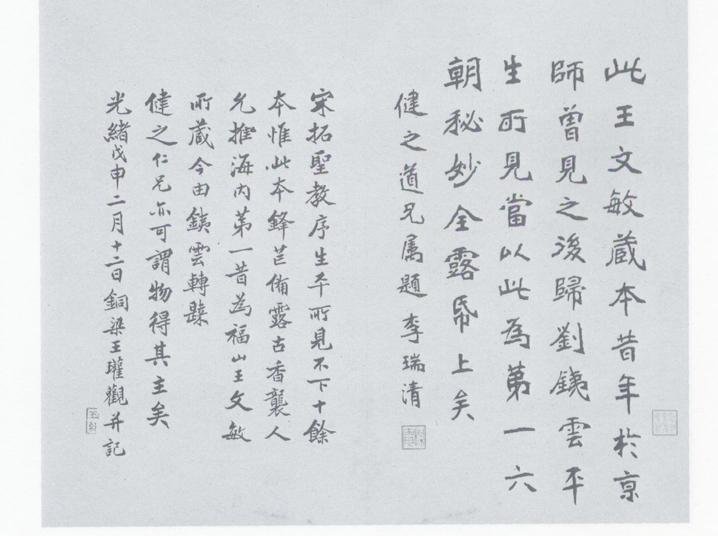 此王文敏藏本昔年於京
師曾見之後歸劉鉄雲平
生所見當以此為第一六
朝秘妙全露帋上矣
健之道兄属題 李瑞清
宋拓聖教序生平所見不下十餘
本惟此本鋒芒備露古香襲人
允推海内第一昔為福山王文敏
所蔵今由鉄雲轉隸
健之仁兄亦可謂物得其主矣
光緒戊申二月十二日銅梁王瓘觀并記